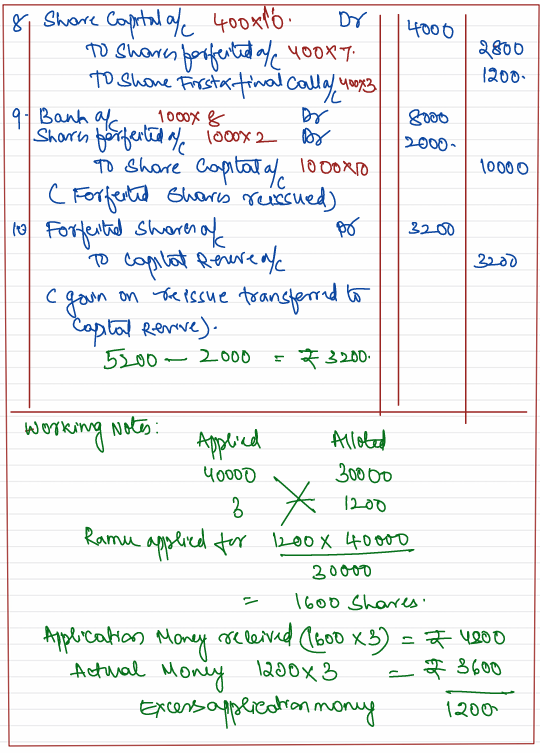 8 Share Capital a/c 400x10. Dr 4000
To Shares forfeited a/c 400x7. 2800
To Share First & final Call a/c 400x3 1200.
9. Bank a/c 1000x8 Dr 8000
Shares forfeited a/c 1000x2 Dr 2000.
To Share Capital a/c 1000x10 10000
( Forfeited Shares reissued)
10 Forfeited Shares a/c Dr 3200
To Capital Reserve a/c 3200
( gain on reissue transferred to
Capital Reserve).
5200 – 2000 = ₹ 3200.
Working Notes:
Applied Alloted
40000 30000
? 1200
Ramu applied for 1200 x 40000
30000
= 1600 Shares.
Application Money received (1600 x3) = ₹ 4800
Actual Money 1200x3 = ₹ 3600
Excess application money 1200.